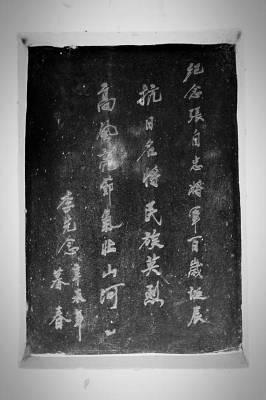 紀念張自忠將軍百歲誕辰
抗日名將民族英烈
高風亮節氣壯山河
李先念
辛未年
暮春